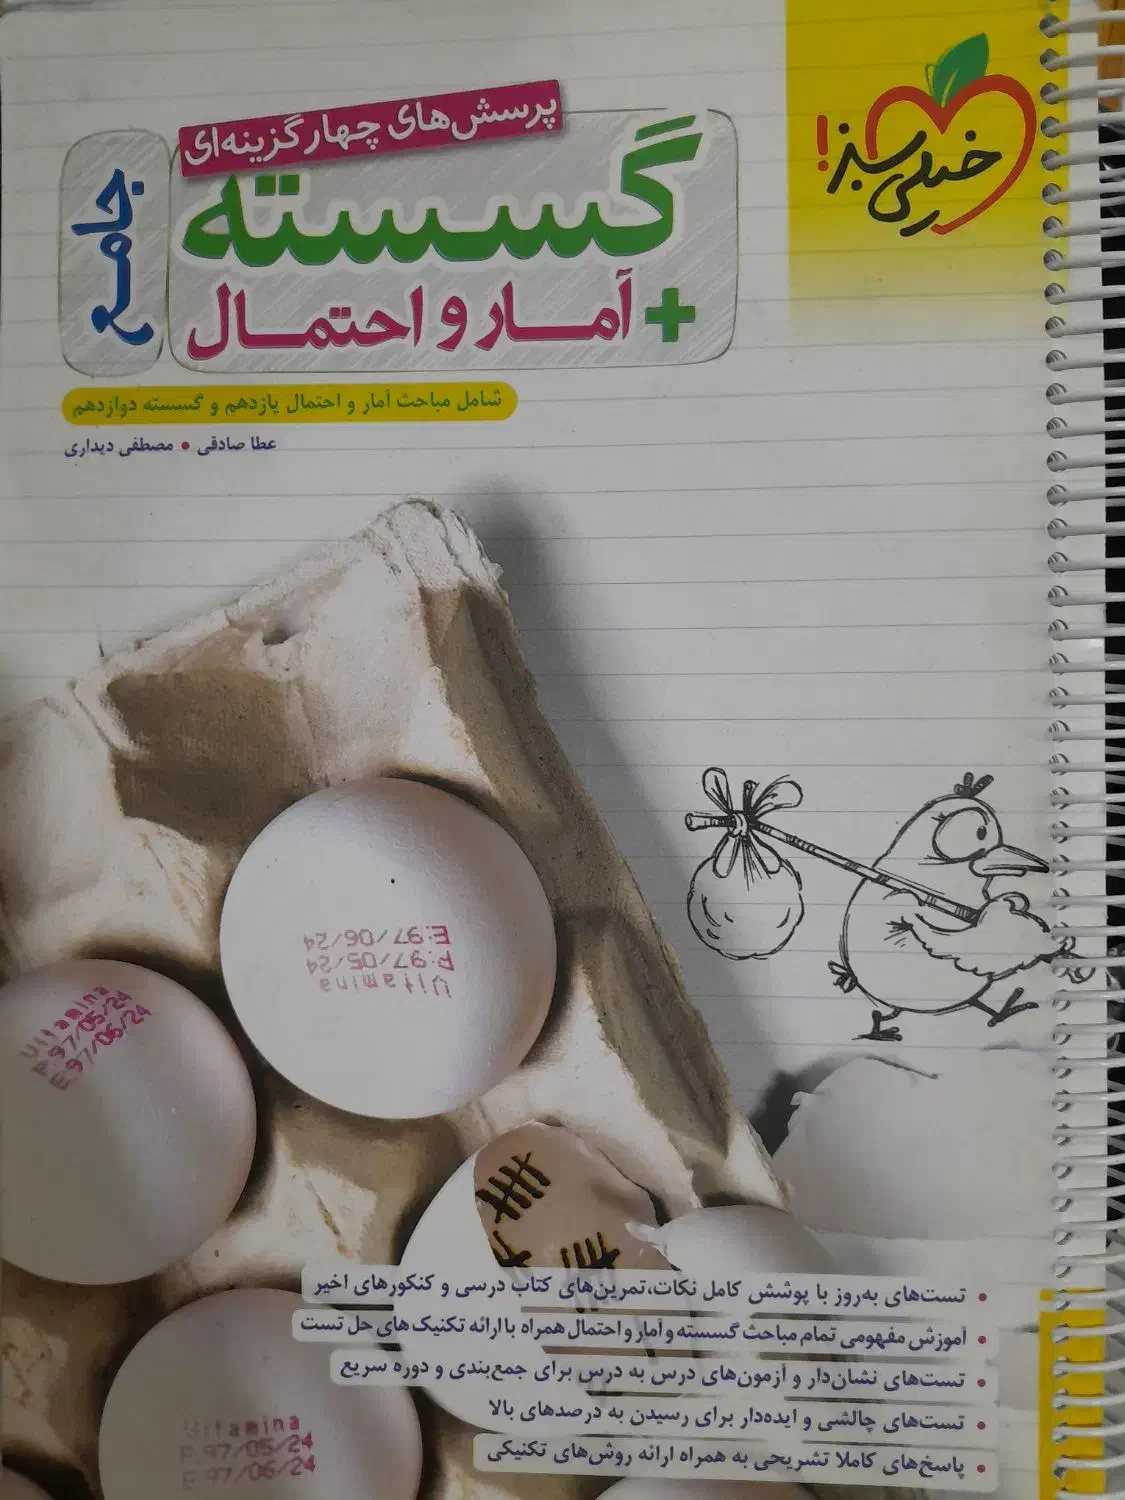 خیلی سبز!
پرسش‌های چهارگزینه‌ای
گسسته
+ آمار و احتمال
جامع
شامل مباحث آمار و احتمال یازدهم و گسسته دوازدهم
عطا صادقی • مصطفی دیداری
E:97/06/24
P:97/05/24
Vitamina
Vitamina
P:97/05/24
E:97/06/24
• تست‌های به‌روز با پوشش کامل نکات،تمرین‌های کتاب درسی و کنکورهای اخیر
• آموزش مفهومی تمام مباحث گسسته و آمار و احتمال همراه با ارائه تکنیک‌های حل تست
• تست‌های نشان‌دار و آزمون‌های درس به درس برای جمع‌بندی و دوره سریع
• تست‌های چالشی و ایده‌دار برای رسیدن به درصدهای بالا
• پاسخ‌های کاملا تشریحی به همراه ارائه روش‌های تکنیکی
Vitamina
P:97/05/24
E:97/06/24